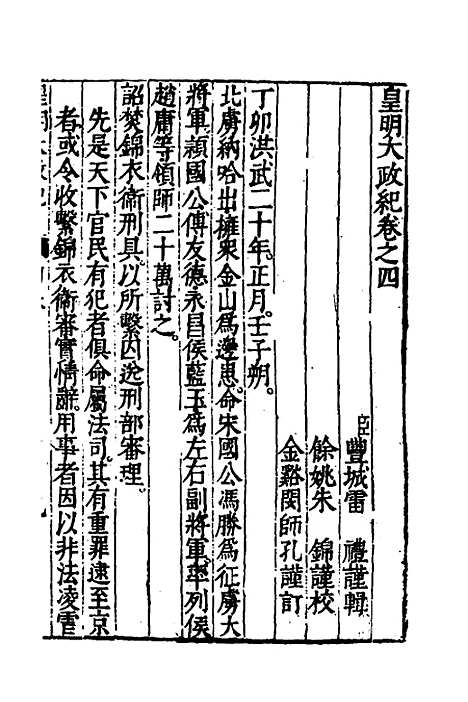 皇明大政紀卷之四
臣豐城雷　禮謹輯
餘姚朱　錦謹校
金谿閔師孔謹訂
丁卯洪武二十年。正月。壬子朔。
北虜納哈出擁衆金山爲邊患。命宋國公馮勝爲征虜大
將軍。潁國公傅友德永昌侯藍玉爲左右副將軍。率列侯
趙庸等領師二十萬討之。
詔焚錦衣衛刑具。以所繫囚送刑部審理。
先是天下官民有犯者俱命屬法司。其有重罪逮至京
者。或令收繫錦衣衛審實情辭。用事者因以非法凌虐